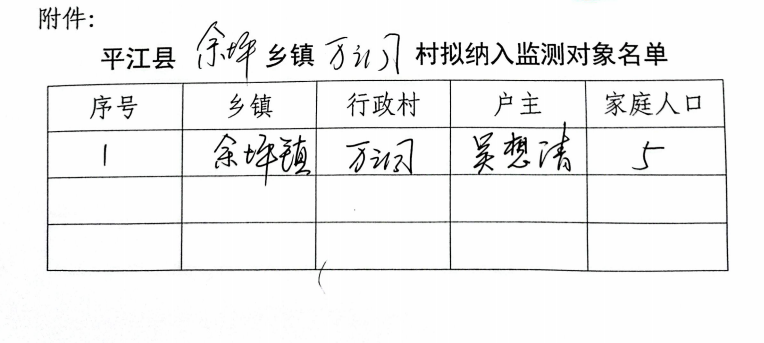 附件：
平江县 余坪 乡镇 万洞 村拟纳入监测对象名单
序号 乡镇 行政村 户主 家庭人口
1 余坪镇 万洞 吴想清 5